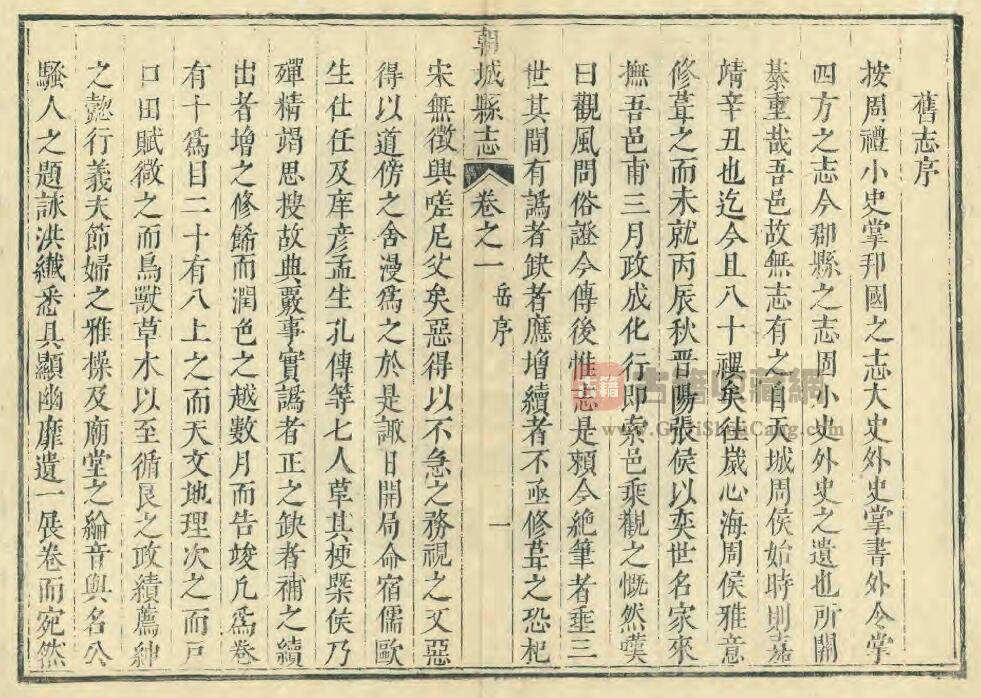 舊志序
按周禮小史掌邦國之志大史外史掌書外令掌
四方之志今郡縣之志固小史外史之遺也所關
綦重哉吾邑故無志有之自天城周侯始時則嘉
靖辛丑也迄今且八十禩矣往嵗心海周侯雅意
修葺之而未就丙辰秋晋陽張侯以奕世名家來
撫吾邑甫三月政成化行即索邑乘觀之慨然嘆
曰觀風問俗證今傳後惟志是頼今絶筆者埀三
世其間有譌者缺者應增續者不亟修葺之恐杞
朝城縣志 卷之一 岳序 一
宋無徵興嗟尼父矣惡得以不急之務視之又惡
得以道傍之舍漫爲之於是諏日開局命宿儒歐
生仕任及庠彦孟生孔傳等七人草其梗槩侯乃
殫精竭思搜故典覈事實譌者正之缺者補之續
出者增之修餙而潤色之越數月而告竣凢爲卷
有十爲目二十有八上之而天文地理次之而戸
口田賦微之而鳥獸草木以至循良之政績薦紳
之懿行義夫節婦之雅操及廟堂之綸音與名公
騷人之題詠洪纎悉具顯幽靡遺一展卷而宛然
古籍收藏網
www.GuJiShouCang.com
古籍